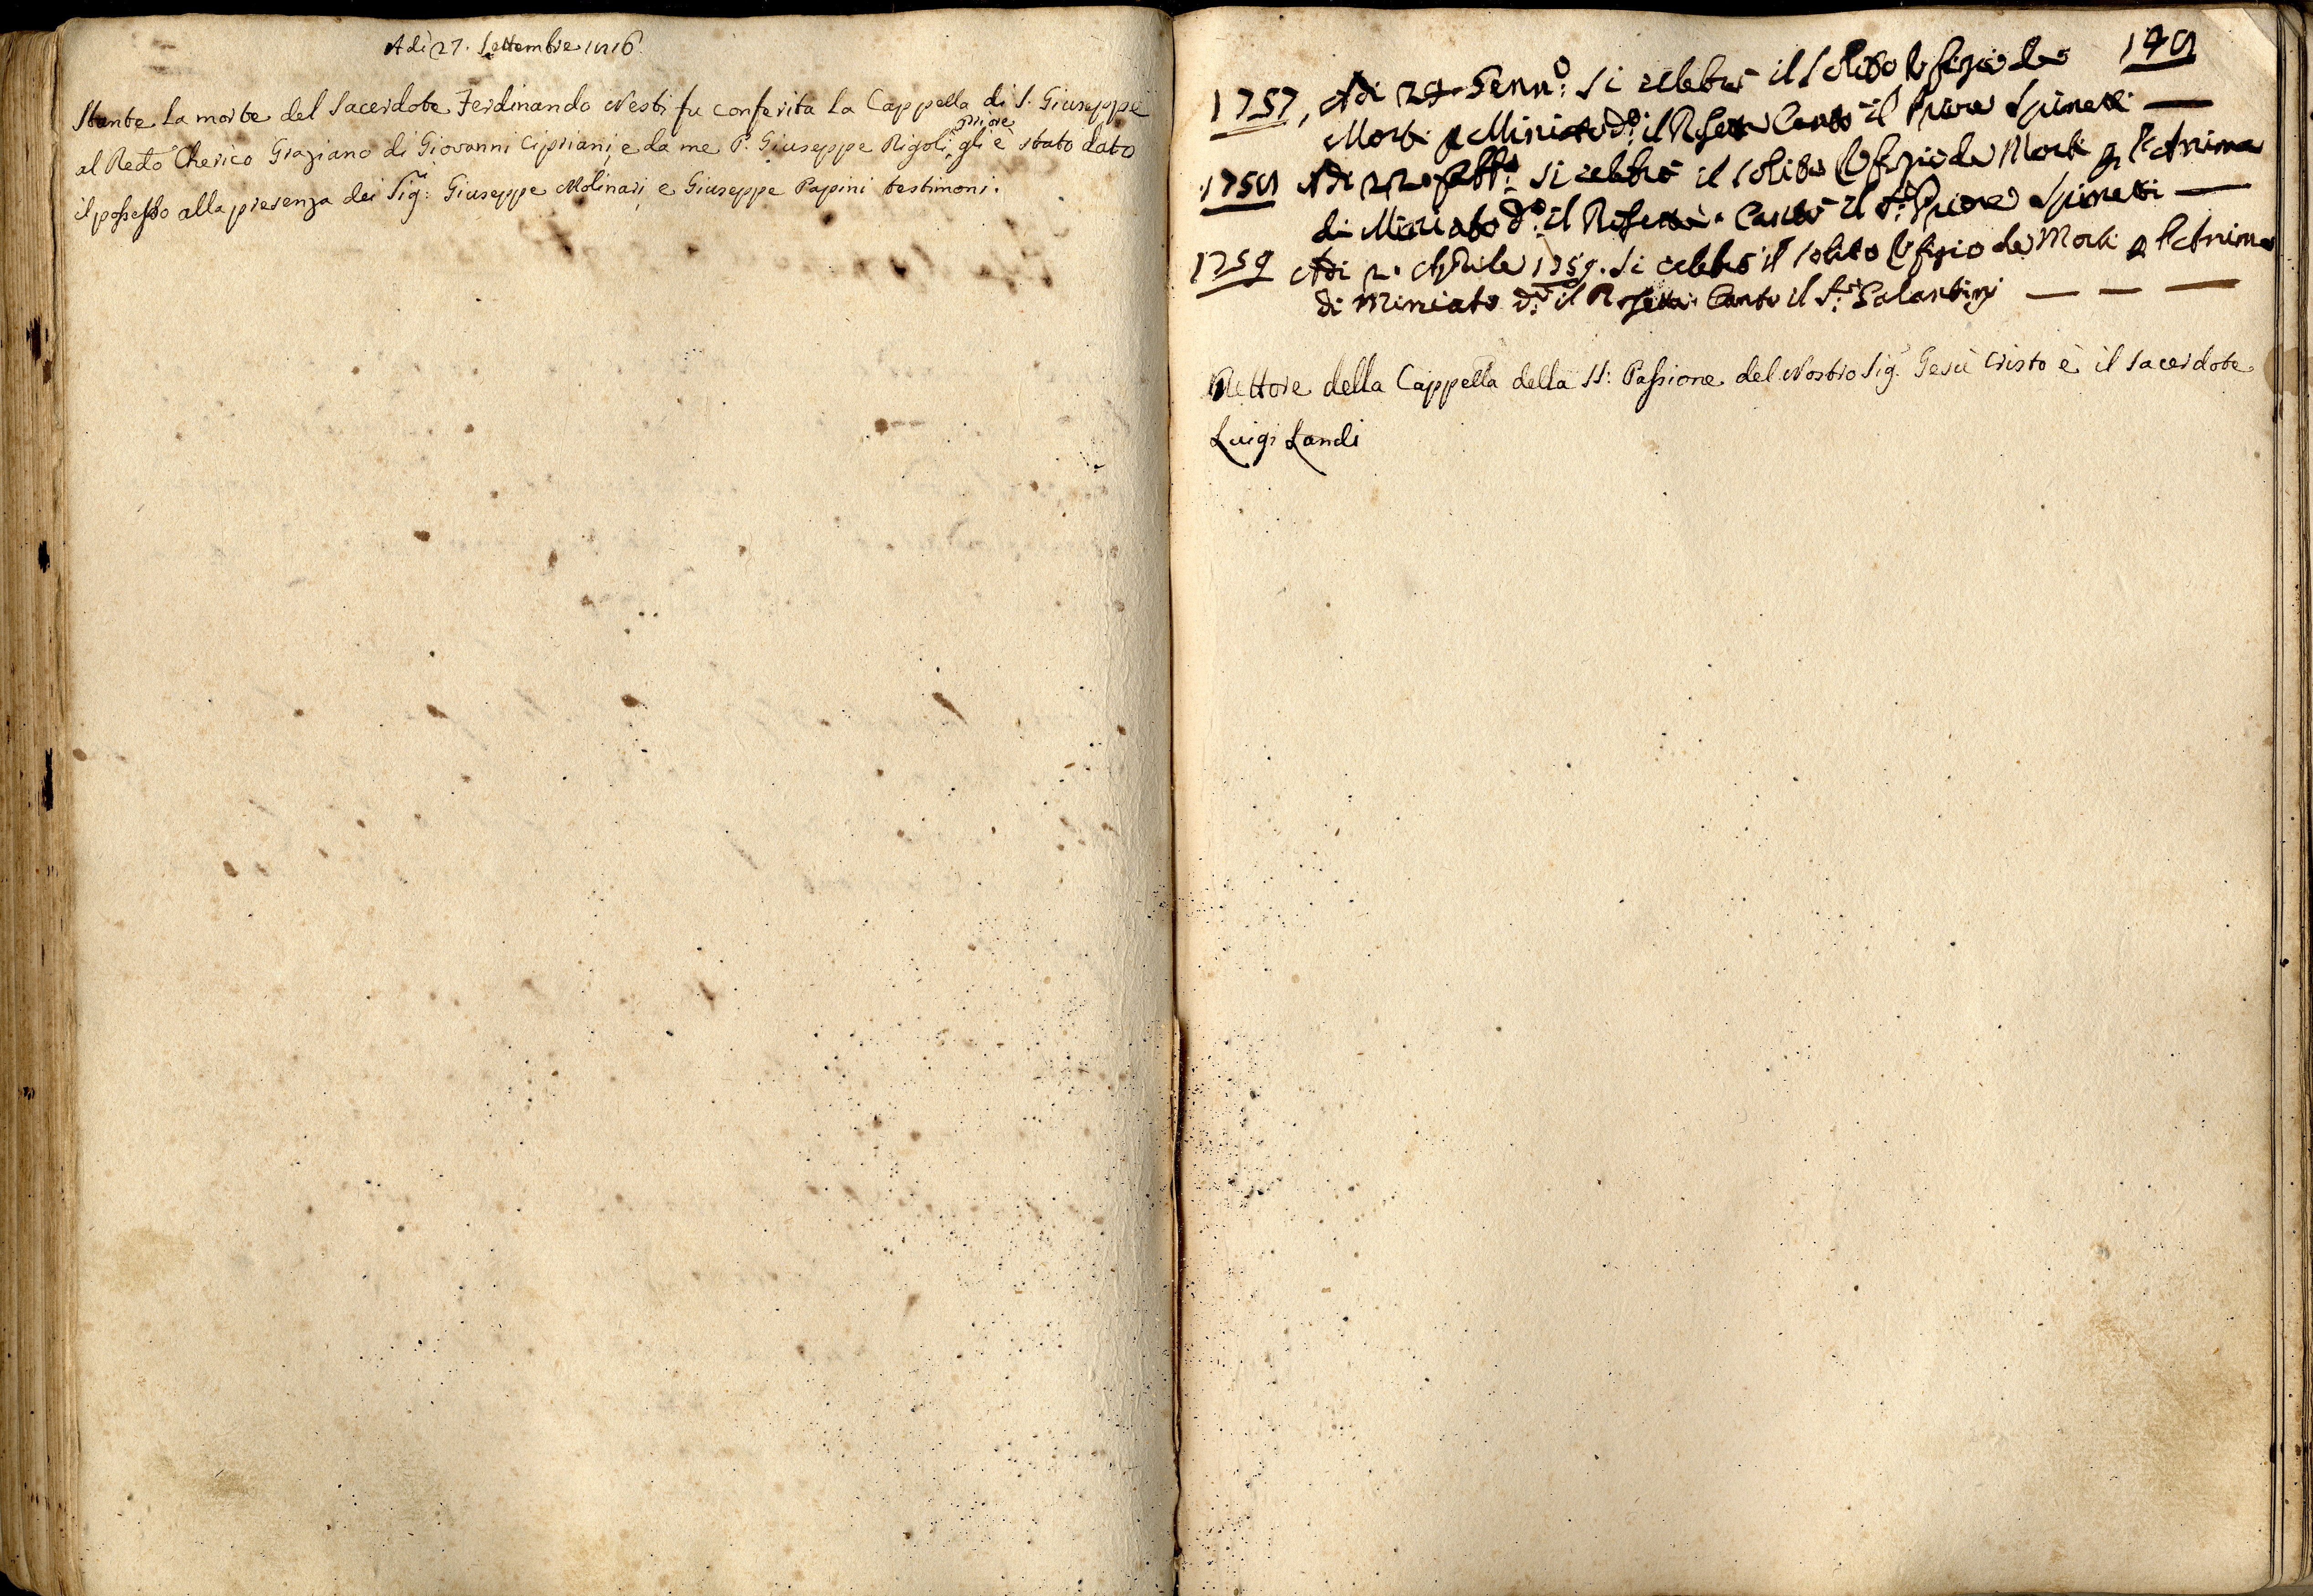 Adì 27. Settembre 1816.
Stante la morte del Sacerdote Ferdinando Nesti fu conferita la Cappella di S. Giuseppe
al Redo Cherico Graziano di Giovanni Cipriani, e da me P. Giuseppe Rigoli priore gli è stato dato
il possesso alla presenza dei Sigi: Giuseppe Molinari, e Giuseppe Papini testimoni.
148
1757, Adi 24 Genno: si celebrò il solito Ofizio da
Morti p Miniato do: il Rosetta Cantò il Priore Spinetti
1758 Adi 22. febbo: si celebrò il solito Ofizio da Morti p l'Anima
di Miniato do: il Rosetta. Cantò il Sr: Priore Spinetti
1759 Adi 2. Aprile 1759. Si celebrò il solito Ofizio da Morti p l'Anima
di Miniato do: il Rosetta. Cantò il Sr: Galantini
Rettore della Cappella della SS: Passione del Nostro Sig. Gesù Cristo è il Sacerdote
Luigi Landi